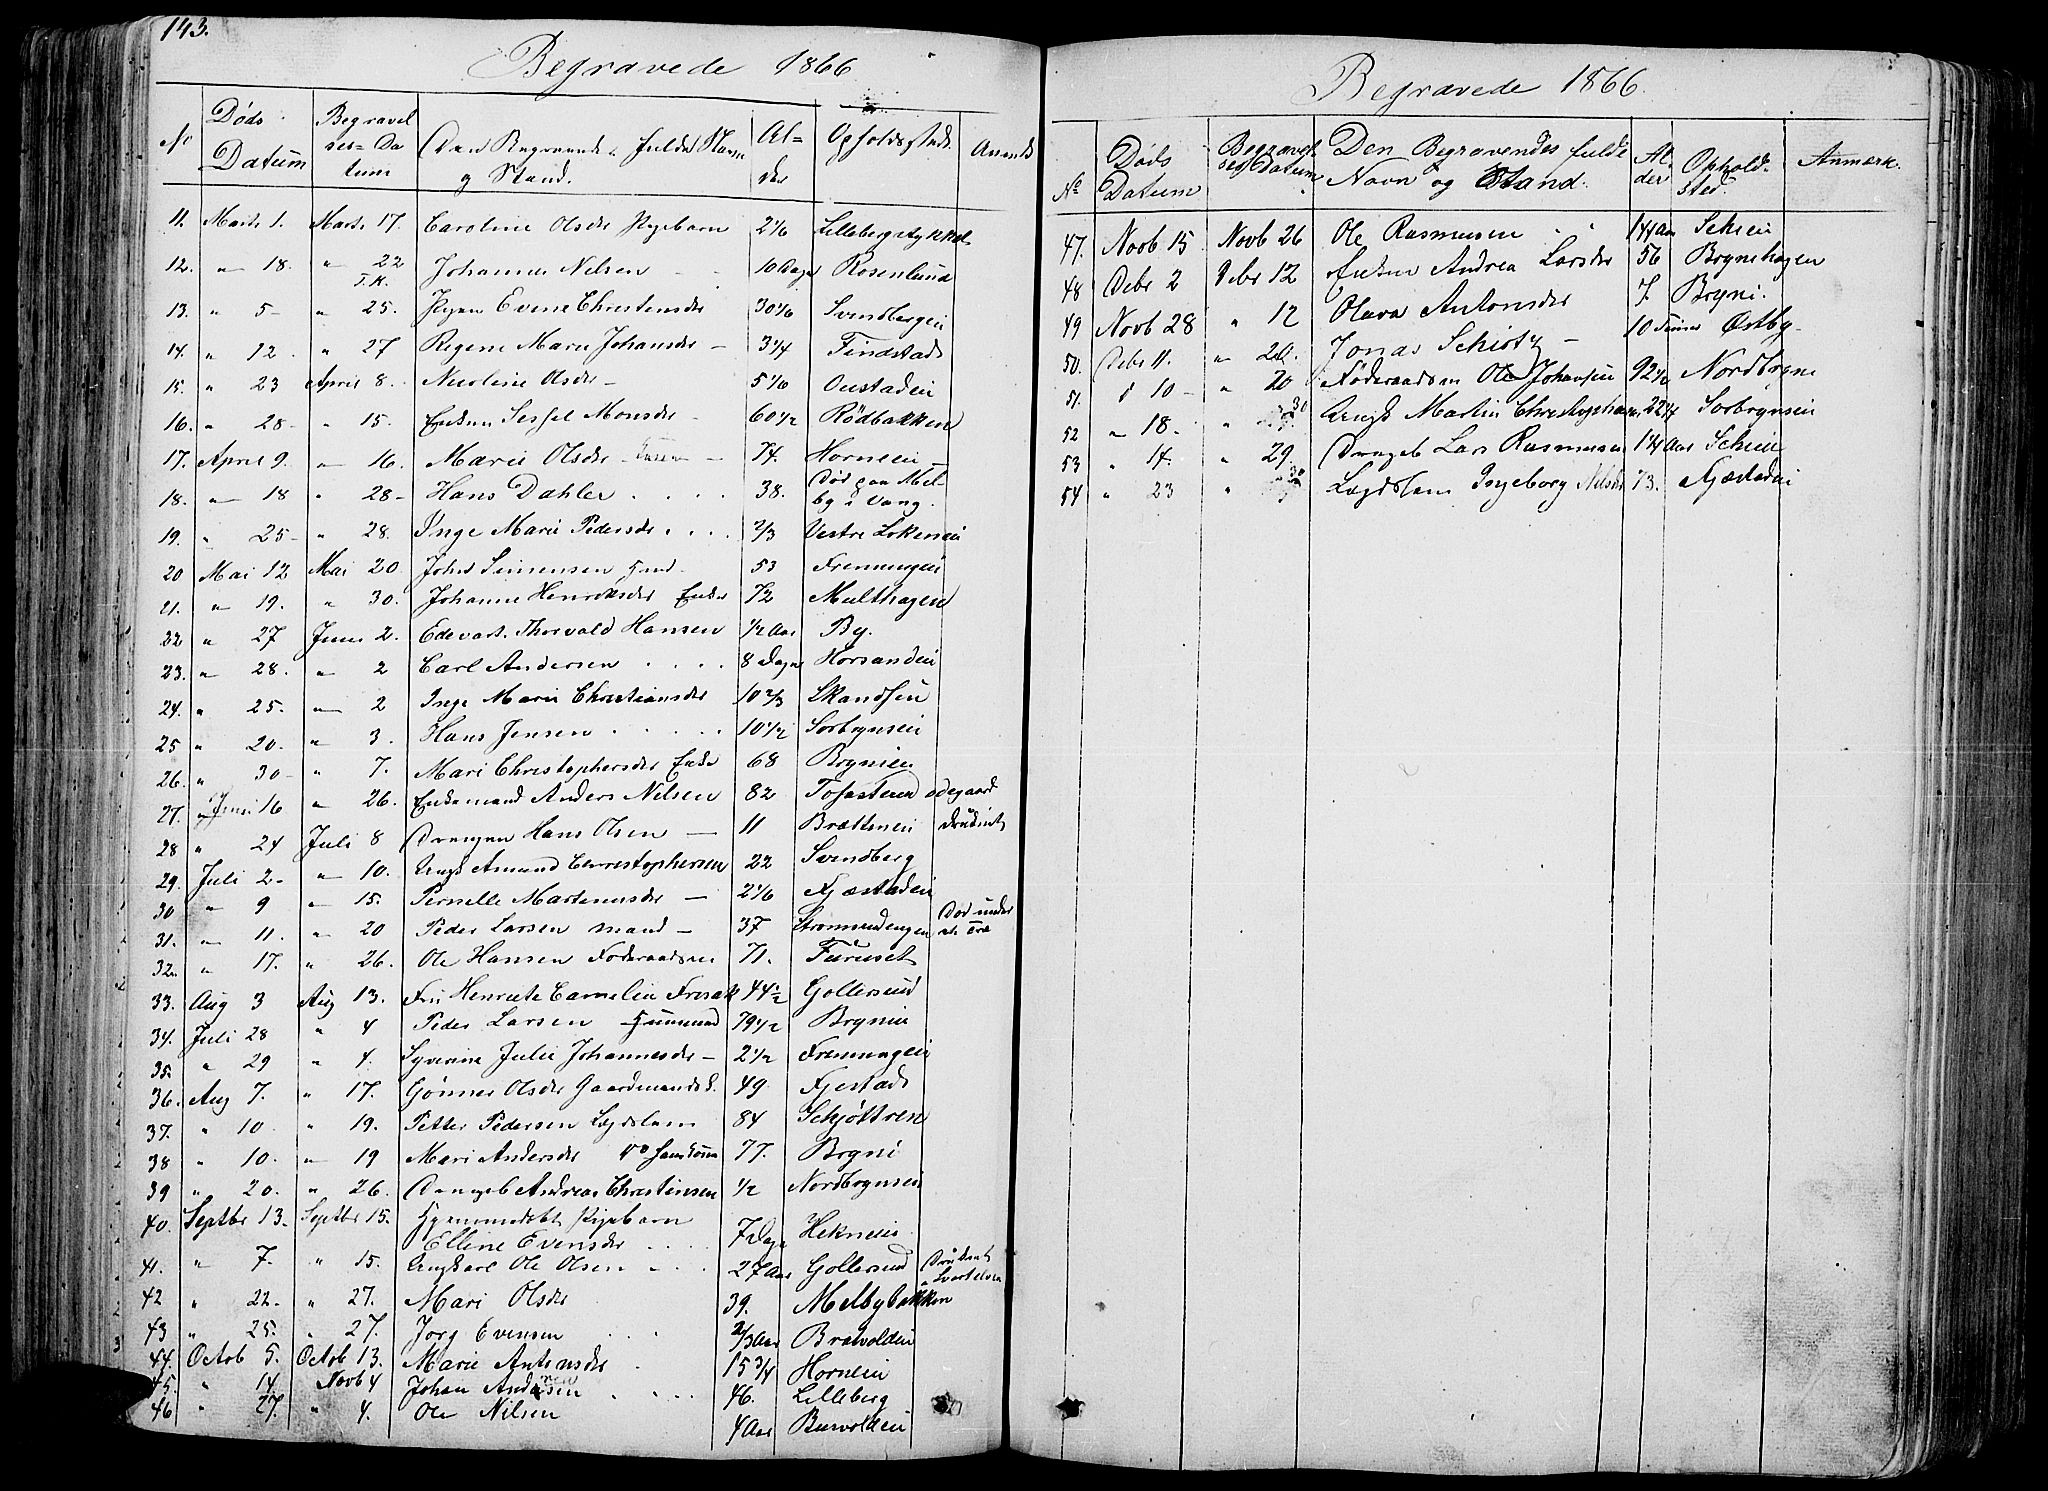 143.
Begravede 1866
No Døds Datum Begravelses-Datum Den Begravendes fulde Navn og Stand. Alder Opholdssted. Anmærk
11. Marts 1. Marts 17. Caroline Olsdr Pigebarn 2 1/6 Lillebergstykket
12. " 18. " 22 J.K. Johannes Nilsen 10 Dage Rosenlund
13. " 5 " 25. Pigen Evene Christensdr 30 1/6 Svendbergeie
14. " 12 " 27 Regine Marie Johansdr 3 1/4 Finestad
15. " 23 April 8. Nicoline Olsdr 5 1/6 Oustadeie
16. " 28 " 15. Enken Sessel Monsdr 60 1/2 Rødbakken
17. April 9. " 16. Marie Olsdr 74. Horneie
18. " 18 " 28 Hans Dahler 38. Død paa Melby i Vang.
19. " 25 " 28. Inge Marie Pedersdr 2/3 Vestre Løkeneie
20 Mai 12 Mai 20 Johs Simensen 53 Frenningeie
21. " 19. " 30. Johanne Henriksdr Enke 72 Multhagen
22 " 27 Juni 2. Edevart Thorvald Hansen 1/2 Aar By.
23. " 28. " 2 Carl Andersen 8 Dage Horsandeie
24. " 25. " 2 Inge Marie Christiansdr 10 2/3 Skandseie
25 " 20. " 3. Hans Jensen 10 1/2 Sorbrynseie
26. " 30 " 7. Mari Christophersdr Enke 68 Brynieie
27. Juni 16 " 26. Enkemand Anders Nilsen 82 Tofastrud ødegaard
28 " 24 Juli 8 Drengen Hans Olsen 11 Brætteneie Druknet
29. Juli 2 " 10. Ungk Amund Christophersen 22 Svendberg
30 " 9 " 15. Pernelle Martenusdr 2 1/6 Fjæstadeie
31. " 11. " 20 Peder Larsen mand 37 Strømsudengen Død under et Træ
32. " 17. " 26. Ole Hansen Føderaadsm 71. Furuset
33. Aug 3 Aug 13. Fru Henriete Camelia Frisak 44 1/2 Gollersrud
34. Juli 28 " 4 Peder Larsen Huusmand 79 1/2 Brynie
35. " 29 " 4. Syverine Julie Johannesdr 2 1/2 Frenningeie
36. Aug 7. " 17. Gønner Olsdr Gaardmandsk. 49 Fjestad
37. " 10 " 19. Petter Pedersen Lægdslem 84 Schjøttren
38 " 10. " 19 Mari Andersdr 77. Bryni
39 " 20. " 26. Drengeb Andreas Christensen 1/2 Nordbrynseie
40. Septbr 13. Septbr 15. Hjemmedøbt Pigebarn
Elline Evensdr 7 Dage Hekneeie
41. " 7. " 15. Ungkarl Ole Olsen 27 Aar Gollersrud Druknet i Svartelven
42 " 22. " 27. Mari Olsdr 39. Melbybakken
43 " 25. " 27. Jorg Evensen 2/3 Aar Bratvoldeie
44. Octob 5. Octob 13. Marie Antonsdr 15 3/4 Horneie
45. " 14. Novb 4 Johan Andersen 46. Lilleberg
46 " 27. " 4. Ole Nilsen 4 Aar Burvoldeie
Begravede 1866.
No Døds Datum Begravelses Datum Den Begravendes fulde Navn og Stand. Alder Opholdsted. Anmærk.
47. Novb 15 Novb 26 Ole Rasmusen 14 Aar Scheie
48 Debr 2 Debr 12 Enken Andrea Larsdr 56 Brynehagen
49 Novb 28 " 12 Olava Antonsdr 7. Bryni.
50. Debr 11. " 20. Jonas Schiøtz 10 Timer Østby
51. " 10 " 20 Føderaadsm Ole Johansen 92 1/2 Nordbryne
52 " 18. " 30 Ungk Martin Christophersen 22 1/4 Sorbrynseie
53 " 14. " 29. Drengeb Lars Rasmusen 1 1/4 Aar Scheie
54 " 23 " 30 Lægdslem Ingeborg Nilsdr 73. Fjæstadeie